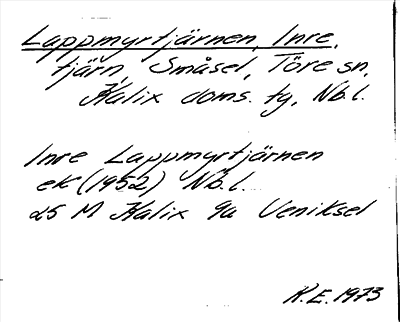 Lappmyrtjärnen, Inre,
tjärn, Småsel, Töre sn,
Kalix doms. tg, Nb.l.
Inre Lappmyrtjärnen
ek (1952) Nb.l.
25 M Kalix 9a Veniksel
K.E. 1973